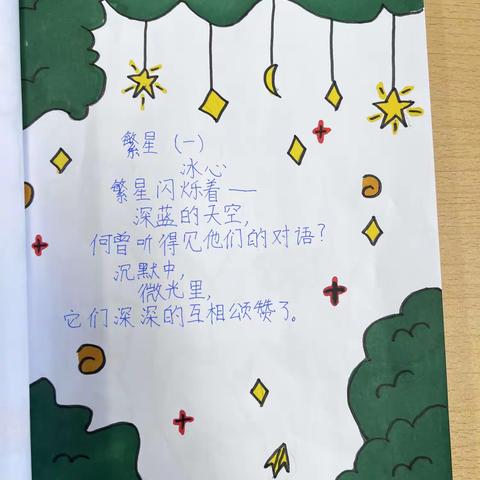 繁星（一）
冰心
繁星闪烁着——
深蓝的天空，
何曾听得见他们的对语？
沉默中，
微光里，
它们深深的互相颂赞了。